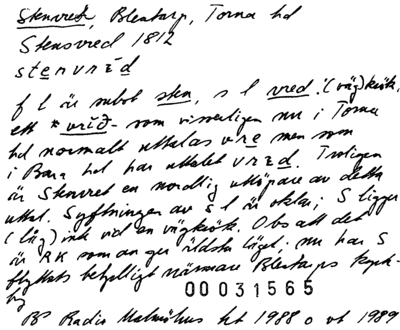 Stenvret, Blentarp, Torna hd
Stensvred 1812
stenvrēd
f l är subst sten, s l vred '(väg)krök,
ett *vrið- som visserligen nu i Torna
hd normalt uttalas vre men som
i Bara hd har uttalet vred. Troligen
är Stenvret en nordlig utlöpare av detta
uttal. Syftningen av s l är oklar; S ligger
(låg) ink vid en vägkrök. Obs att det
är RK som anger äldsta läget; nu har S
flyttats betydligt närmare Blentarps kyrk-
by
00031565
BP Radio Malmöhus ht 1988 o vt 1989